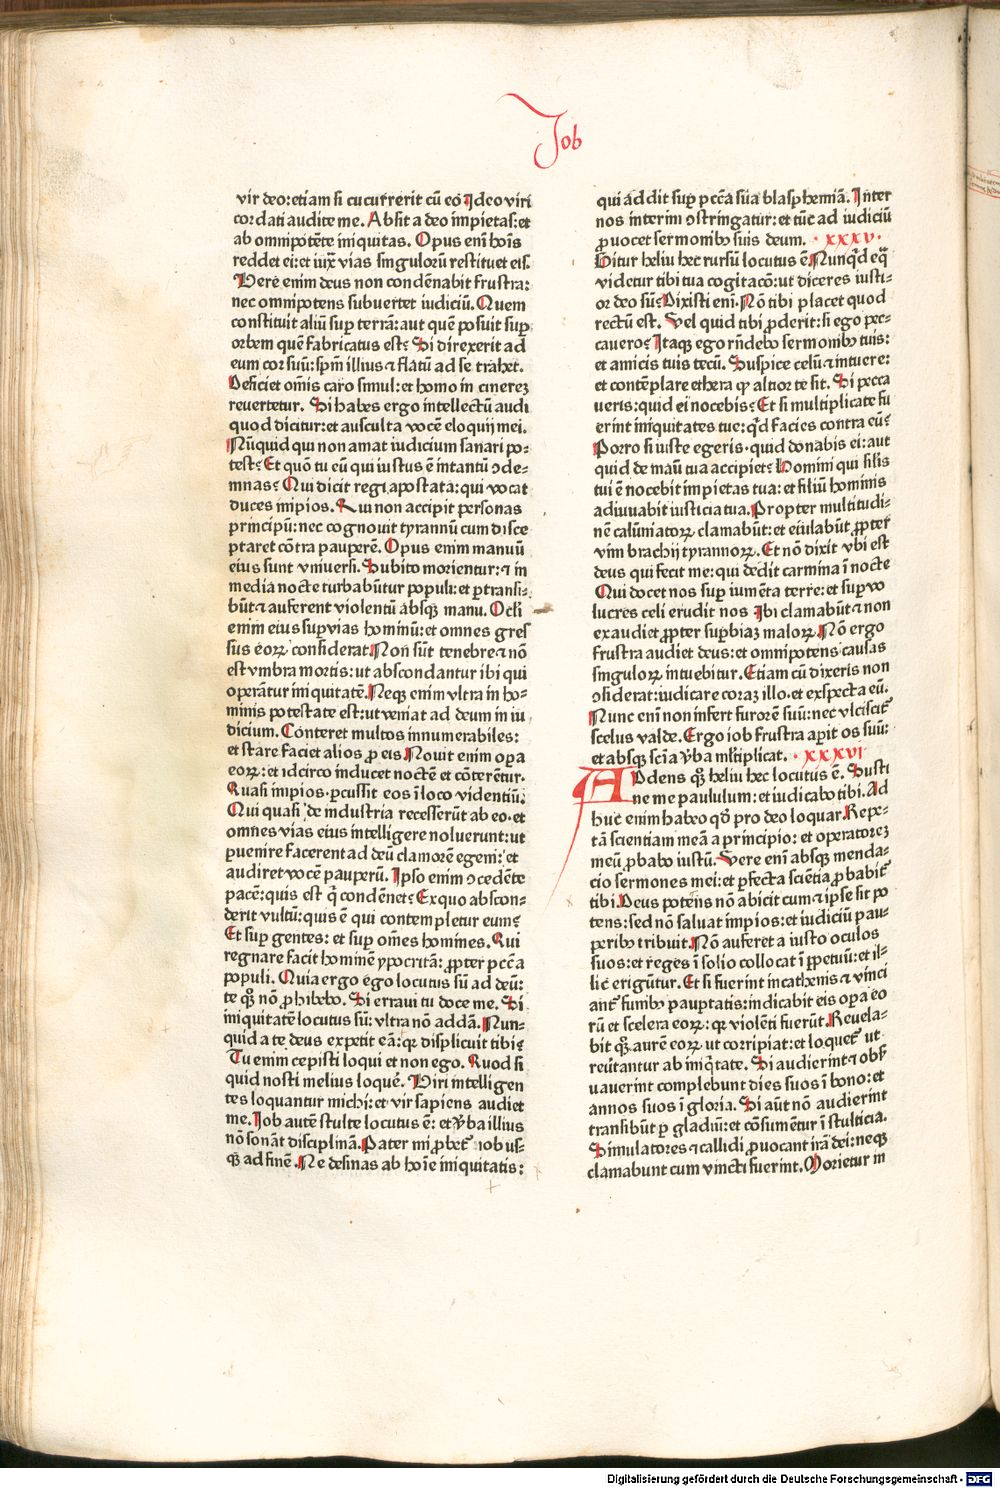 Job
vir deo: etiam si cucurrerit cū eo Ideo viri
cordati audite me. Absit a deo impietas: et
ab omnipotēte iniquitas. Opus eni hoīs
reddet ei: et iuxͣ vias singulorū restituet eis.
Vere enim deus non condēnabit frustra:
nec omnipotens subuertet iudiciū. Quem
constituit aliū sup̱ terrā: aut quē posuit sup̱
orbem quē fabricatus est? Si direxerit ad
eum cor suū: sp̄m illius ⁊ flatū ad se trahet.
Deficiet om̄is caro simul: et homo in cinereꝫ
reuertetur. Si habes ergo intellectū audi
quod dicitur: et ausculta vocē eloquij mei.
Nūquid qui non amat iudicium sanari po-
test? Et quō tu eū qui iustus ē intantū ꝯde-
mnas? Qui dicit regi apostata: qui vocat
duces impios. Qui non accipit personas
principū: nec cognouit tyrannū cum disce
ptaret cōtra pauperē. Opus enim manuū
eius sunt vniuersi. Subito morientur: ⁊ in
media nocte turbabūtur populi: et p̱transi-
būt ⁊ auferent violentū absqꝫ manu. Ocli
enim eius sup̱ vias hominū: et omnes gres
sus eoꝝ considerat Non sūt tenebre ⁊ nō
est vmbra mortis: ut abscondantur ibi qui
operātur iniquitatē. Neqꝫ enim vltra in ho-
minis potestate est: ut veniat ad deum in iu
dicium. Conteret multos innumerabiles:
et stare faciet alios ꝓ eis Nouit enim oꝑa
eoꝝ: et idcirco inducet noctē et cōterētur.
Quasi impios ꝑcussit eos ī loco videntiū.
Qui quasi de industria recesserūt ab eo. et
omnes vias eius intelligere noluerunt: ut
ꝑuenire facerent ad deū clamorē egeni: et
audiret vocē pauperū. Ipso enim ꝯcedēte
pacē: quis est q̄ condēnet? Ex quo abscon-
derit vultū: quis ē qui contempletur eum?
Et sup̱ gentes: et sup̱ om̄es homines. Qui
regnare facit hominē ypocritā: ꝓpter pcc̄a
populi. Quia ergo ego locutus sū ad deū:
te qꝫ nō ꝓhibebo. Si erraui tu doce me. Si
iniquitatē locutus sū: vltra nō addā. Nun-
quid a te deus expetit eā: qꝛ displicuit tibi?
Tu enim cepisti loqui et non ego. Quod si
quid nosti melius loquē. Viri intelligen
tes loquantur michi: et vir sapiens audiet
me. Job autē stulte locutus ē: et v̄ba illius
nō sonāt disciplinā. Pater mi ꝓbet᷑ iob us-
qꝫ ad finē. Ne desinas ab hoīe iniquitatis:
qui addit sup̱ pcc̄a sua blasphemiā. Inter
nos interim ꝯstringatur: et tūc ad iudiciū
ꝓuocet sermonibꝰ suis deum. · xxxv ·
Igitur heliu hec rursū locutus ē. Nunqͥd eqͣ
videtur tibi tua cogitaco: ut diceres iusti-
or deo sū? Dixisti eni. Nō tibi placet quod
rectū est. Vel quid tibi ꝓderit: si ego pec-
cauero? Itaqꝫ ego rn̄debo sermonibꝰ tuis:
et amicis tuis tecū. Suspice celū ⁊ intuere:
et contēplare ethera qꝫ altior te sit. Si pecca
ueris: quid ei nocebis? Et si multiplicate fu
erint iniquitates tue: qͥd facies contra eū?
Porro si iuste egeris. quid donabis ei: aut
quid de manū tua accipiet? Homini qui silis
tui ē nocebit impietas tua: et filiū hominis
adiuuabit iusticia tua. Propter multitudi-
nē calūniatoꝝ clamabūt: et eiulabūt ꝓpter
vim brachij tyrannoꝝ. Et nō dixit vbi est
deus qui fecit me: qui dedit carmina ī nocte
Qui docet nos sup̱ iumēta terre: et sup̱ vo
lucres celi erudit nos Ibi clamabūt ⁊ non
exaudiet ꝓpter sup̱biaꝫ maloꝝ. Nō ergo
frustra audiet deus: et omnipotens causas
singuloꝝ intuebitur. Etiam cū dixeris non
ꝯsiderat: iudicare coraꝫ illo. et exspecta eū.
Nunc enī non infert furorē suū: nec vlciscit᷑
scelus valde. Ergo iob frustra aꝑit os suū:
et absqꝫ scīa v̄ba mltiplicat. · xxxvi
Addens qꝫ heliu hec locutus ē. Susti
ne me paululum: et iudicabo tibi. Ad
huc enim habeo qd̄ pro deo loquar Repe-
tā scientiam meā a principio: et operatoreꝫ
meū ꝓbabo iustū. Vere enī absqꝫ menda-
cio sermones mei: et ꝑfecta scīentia ꝓbabit᷑
tibi. Deus potens nō abicit cum ⁊ ipse sit po
tens: sed nō saluat impios: et iudiciū pau-
ꝑeribꝰ tribuit. Nō auferet a iusto oculos
suos: et reges ī solio collocat ī ꝑpetuū: et il-
lic erigūtur. Et si fuerint in cathenis ⁊ vinci
ant᷑ funibꝰ pauꝑtatis: indicabit eis oꝑa eo
rū et scelera eoꝝ: qꝛ violēti fuerūt. Reuela-
bit qꝫ aurē eoꝝ ut corripiat: et loquet᷑ ut
reūtantur ab iniqͥtate. Si audierint ⁊ obſ
uauerint complebunt dies suos ī bono: et
annos suos ī gloria. Si aūt nō audierint
transibūt ꝑ gladiū: et cōsumētur ī stulticia.
Simulatores ⁊ callidi ꝓuocant irā dei: neqꝫ
clamabunt cum vincti fuerint. Morietur in
Digitalisierung gefördert durch die Deutsche Forschungsgemeinschaft - DFG